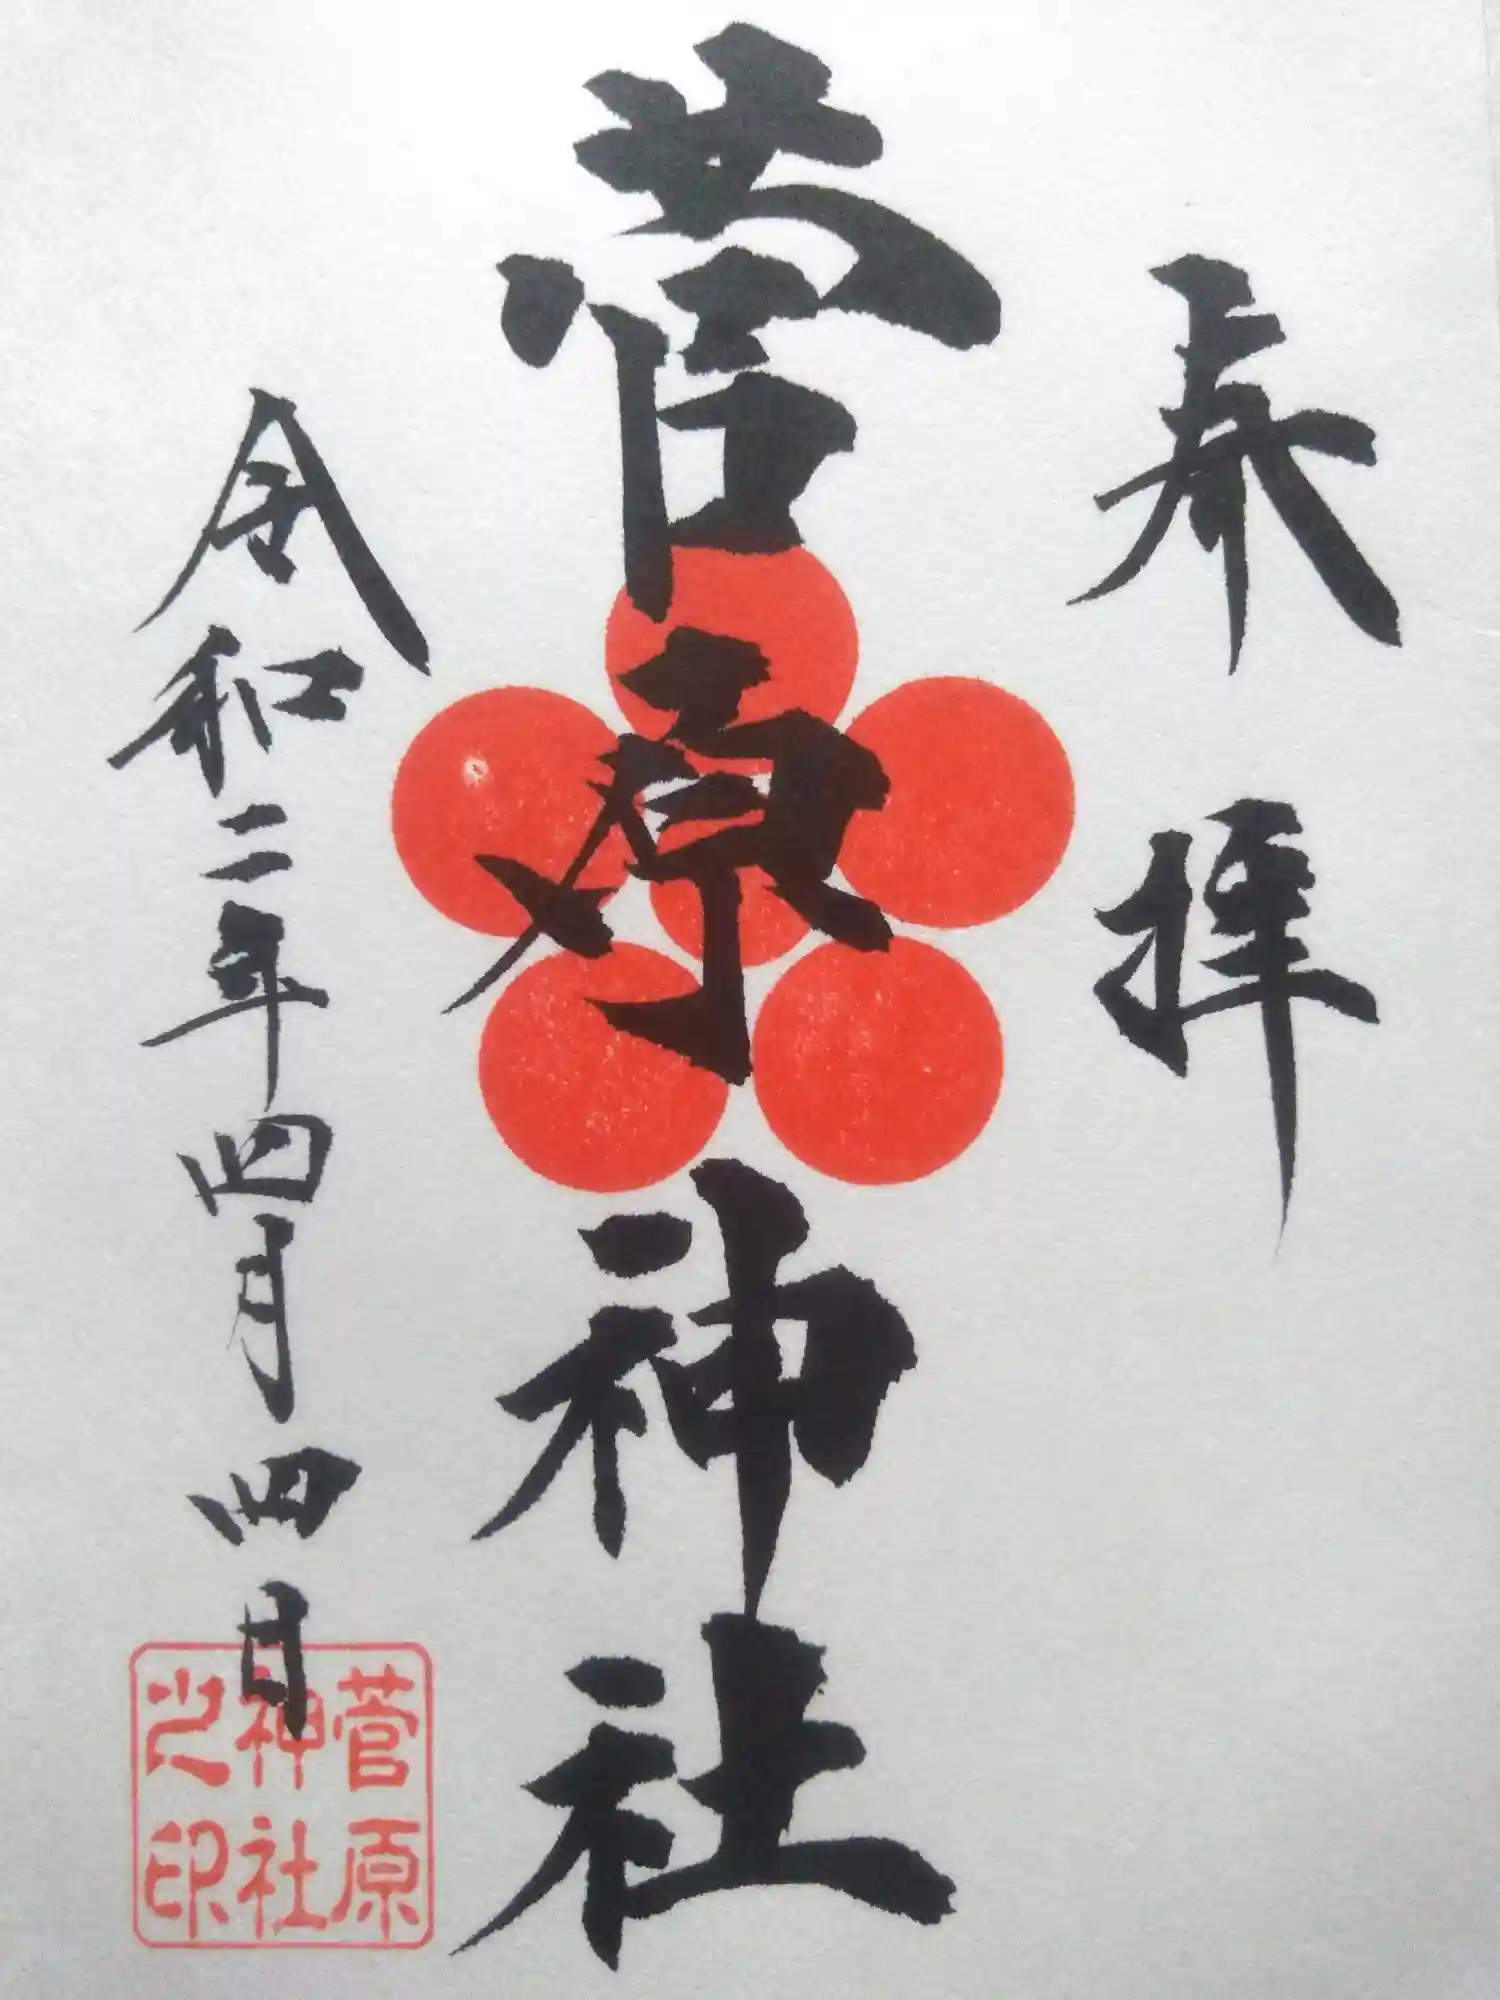 奉拝
菅原神社
令和二年四月四日
菅原
神社
之印